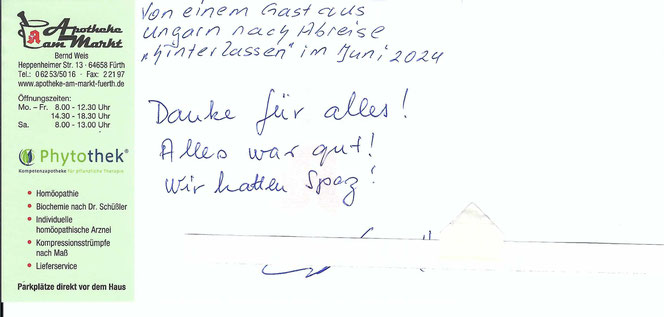 Apotheke
am Markt
Bernd Weis
Heppenheimer Str. 13 · 64658 Fürth
Tel.: 0 62 53/50 16 · Fax: 2 21 97
www.apotheke-am-markt-fuerth.de
Öffnungszeiten:
Mo. – Fr. 8.00 - 12.30 Uhr
14.30 - 18.30 Uhr
Sa. 8.00 - 13.00 Uhr
Phytothek®
Kompetenzapotheke für pflanzliche Therapie
• Homöopathie
• Biochemie nach Dr. Schüßler
• Individuelle
homöopathische Arznei
• Kompressionsstrümpfe
nach Maß
• Lieferservice
Parkplätze direkt vor dem Haus
Von einem Gast aus
Ungarn nach Abreise
„hinterlassen" im Juni 2024
Danke für alles!
Alles war gut!
Wir hatten Spaz!